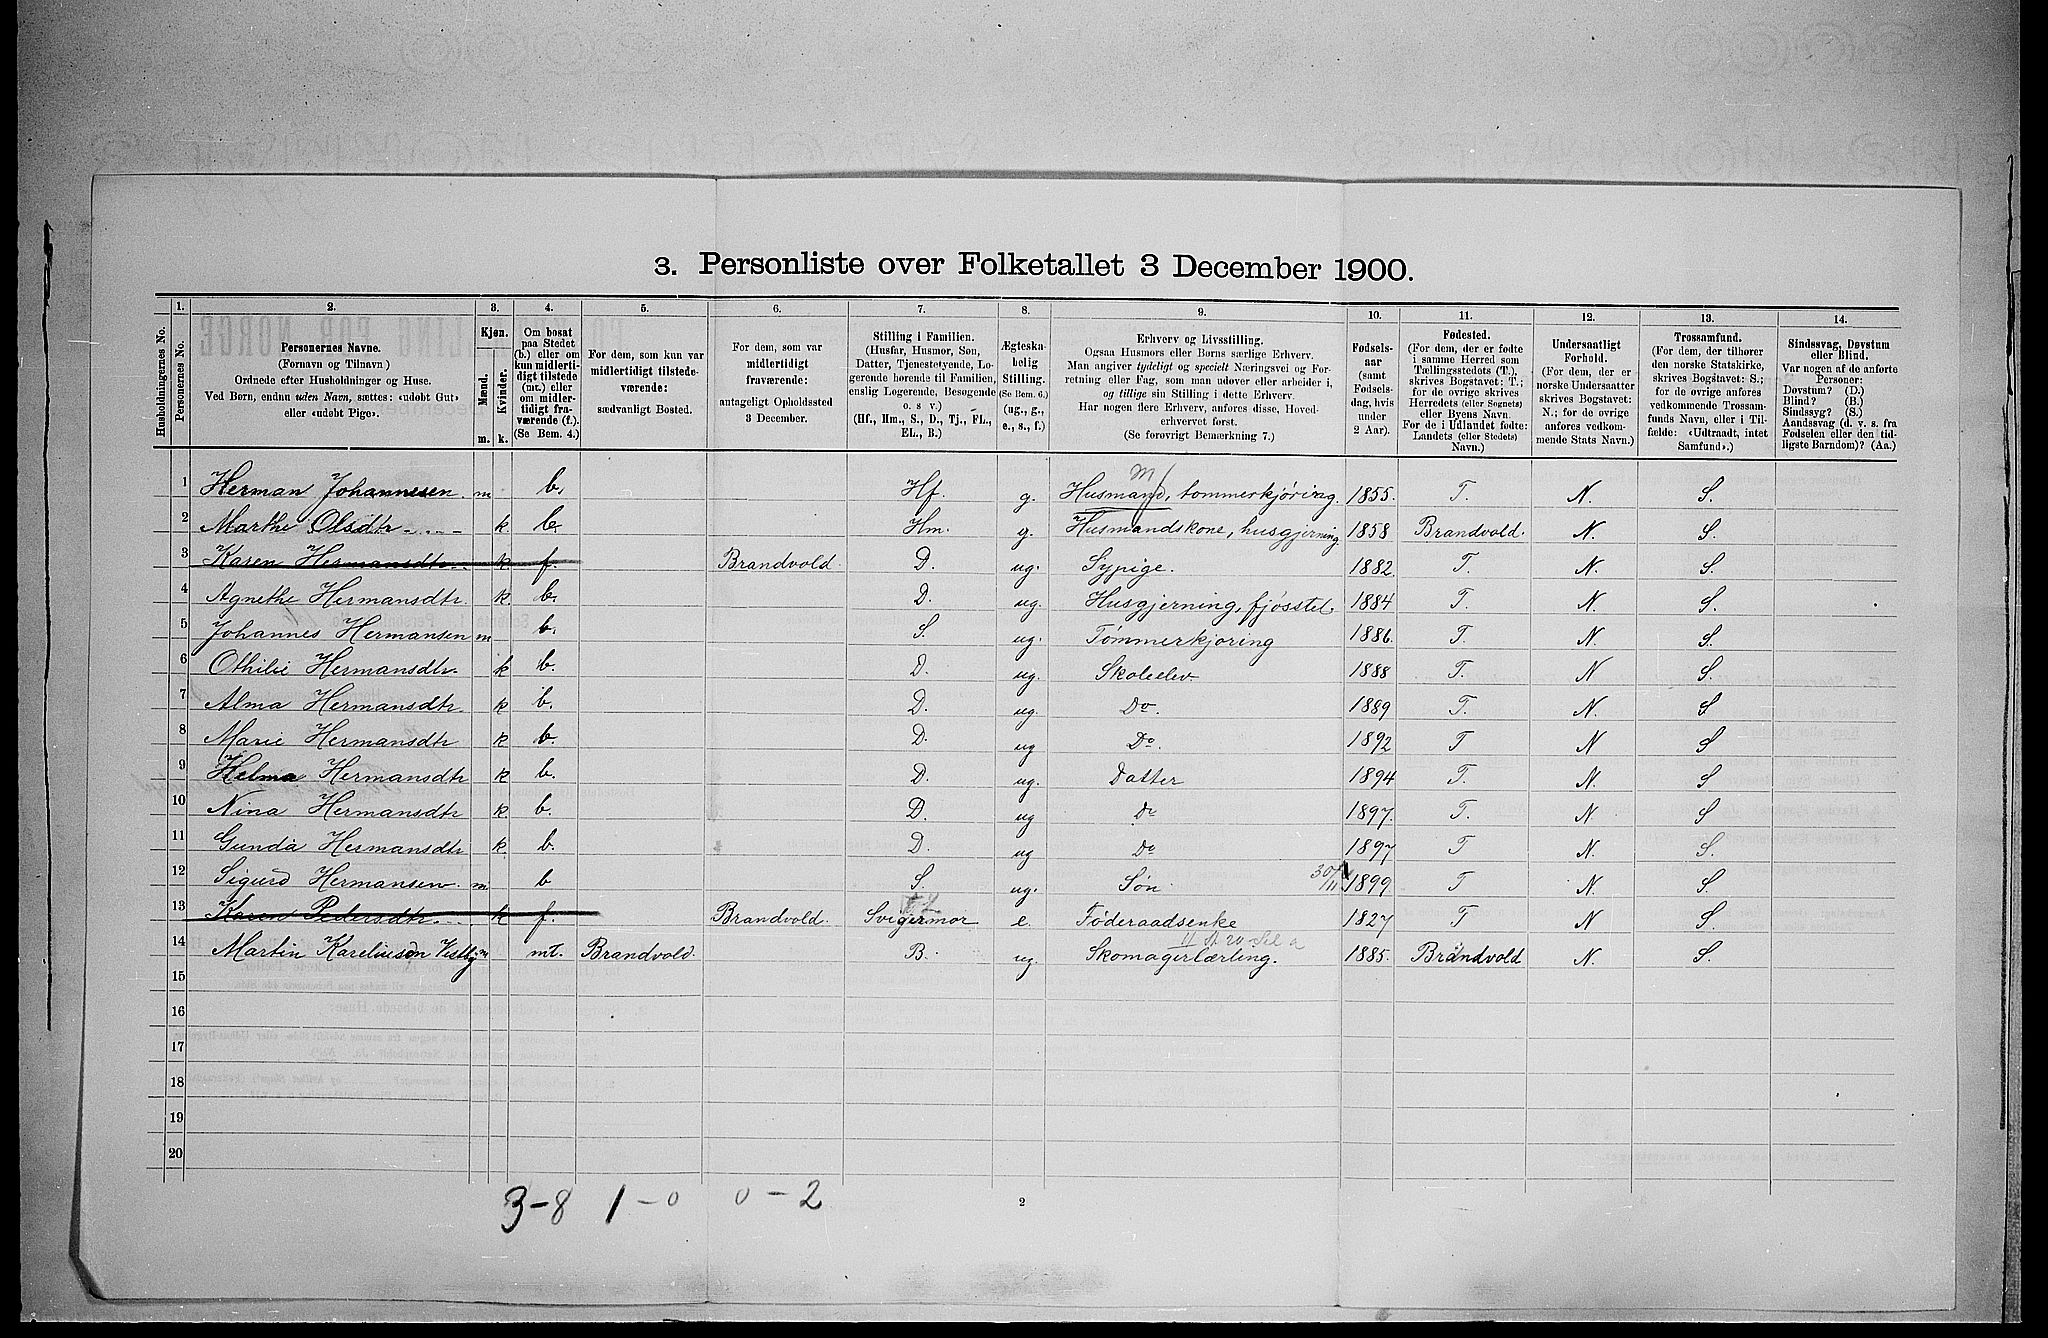 3. Personliste over Folketallet 3 December 1900.
1. 2. 3. 4. 5. 6. 7. 8. 9. 10. 11. 12. 13. 14.
Husholdningernes No.
Personernes No.
Personernes Navne.
(Fornavn og Tilnavn)
Ordnede efter Husholdninger og Huse.
Ved Børn, endnu uden Navn, sættes: «udøbt Gut»
eller «udøbt Pige».
Kjøn.
Mænd.
Kvinder.
m. k.
Om bosat
paa Stedet
(b.) eller om
kun midlerti-
digt tilstede
(mt.) eller
om midler-
tidigt fra-
værende (f.).
(Se Bem. 4.)
For dem, som kun var
midlertidigt tilstede-
værende:
sædvanligt Bosted.
For dem, som var
midlertidigt
fraværende:
antageligt Opholdssted
3 December.
Stilling i Familien.
(Husfar, Husmor, Søn,
Datter, Tjenestetyende, Lo-
gerende hørende til Familien,
enslig Logerende, Besøgende
o. s v.)
(Hf., Hm., S., D., Tj., FL.,
EL., B.)
Ægteska-
belig
Stilling.
(Se Bem. 6.)
(ug., g.,
e., s., f.)
Erhverv og Livsstilling.
Ogsaa Husmors eller Børns særlige Erhverv.
Man angiver tydeligt og specielt Næringsvei og For-
retning eller Fag, som man udøver eller arbeider i,
og tillige sin Stilling i dette Erhverv.
Har nogen flere Erhverv, anføres disse, Hoved-
erhvervet først.
(Se forøvrigt Bemærkning 7.)
Fødsels-
aar
(samt
Fødsels-
dag, hvis
under
2 Aar).
Fødested.
(For dem, der er fødte
i samme Herred som
Tællingsstedets (T.),
skrives Bogstavet: T.;
for de øvrige skrives
Herredets (eller Sognets)
eller Byens Navn.
For de i Udlandet fødte:
Landets (eller Stedets)
Navn.)
Undersaatligt
Forhold.
(For dem, der er
norske Undersaatter
skrives Bogstavet:
N.; for de øvrige
anføres vedkom-
mende Stats Navn.)
Trossamfund.
(For dem, der tilhører
den norske Statskirke,
skrives Bogstavet: S.;
for de øvrige anføres
vedkommende Trossam-
funds Navn, eller i Til-
fælde: «Udtraadt, intet
Samfund».)
Sindssvag, Døvstum
eller Blind.
Var nogen af de anførte
Personer:
Døvstum? (D.)
Blind? (B.)
Sindssyg? (S.)
Aandssvag (d. v. s. fra
Fødselen eller den tid-
ligste Barndom)? (Aa.)
1 Herman Johannesen m b. Hf. g. Husmand, tømmerkjøring. 1855. T. N. S.
2 Marthe Olsdtr k. b. Hm. g. Husmandskone, husgjerning. 1858 Brandvold. N. S.
3 Karen Hermansdtr. k. f. Brandvold. D. ug. Sypige. 1882. T. N. S.
4 Agnethe Hermansdtr. k. b. D. ug. Husgjerning, fjøsstel. 1884 T. N. S.
5 Johannes Hermansen m b. S. ug. Tømmerkjøring 1886. T. N. S.
6 Othilie Hermansdtr. k b. D. ug. Skoleelev. 1888 T. N S.
7 Alma Hermansdtr. k b. D. ug. Do. 1889 T. N. S
8 Marie Hermansdtr k b. D. ug Do. 1892 T N S
9 Helma Hermansdtr k b. D. ug. Datter 1894 T. N. S
10 Nina Hermansdtr k. b. D. ug Do 1897. T. N S
11 Gunda Hermansdtr k. b. D. ug Do 1897 T N. S.
12 Sigurd Hermansen. m. b S. ug. Søn. 30/11 1899. T N. S
13 Karen Pedersdtr. k f. Brandvold. Svigermor e. Føderaadsenke 1827 T N S.
14 Martin Kareliusen Vestby m mt. Brandvold. B. ug. Skomagerlærling. 1885. Brandvold N. S.
15
16
17
18
19
20
3-8 1-0 0-2
2